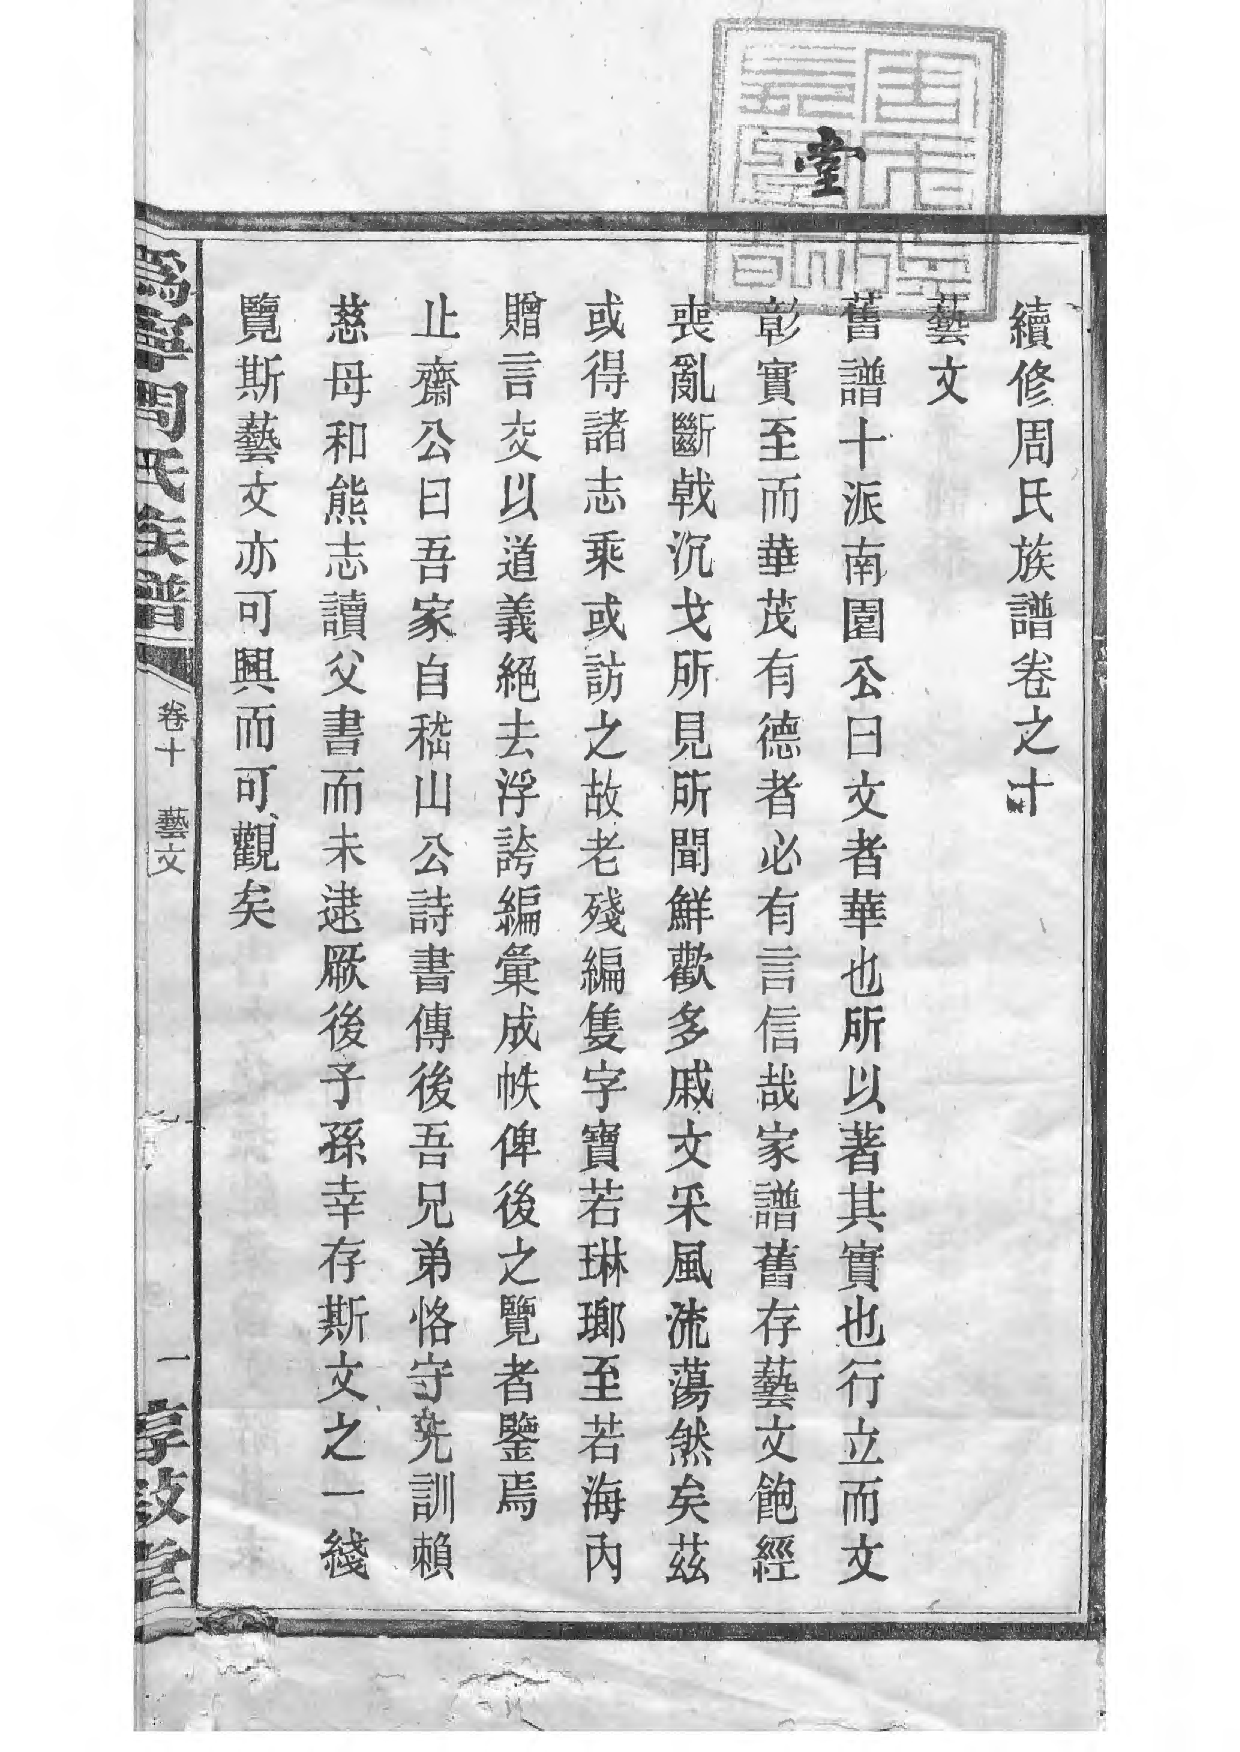 堂
續修周氏族譜卷之十
藝文
舊譜十派南園公曰文者華也所以著其實也行立而文
彰實至而華茂有德者必有言信哉家譜舊存藝文飽經
喪亂斷戟沉戈所見所聞鮮歡多戚文采風流蕩然矣茲
或得諸志乘或訪之故老殘編隻字寶若琳瑯至若海內
贈言交以道義絕去浮誇編彙成帙俾後之覽者鑒焉
止齋公曰吾家自嵇山公詩書傳後吾兄弟恪守先訓賴
慈母和熊志讀父書而未逮厥後子孫幸存斯文之一綫
覽斯藝文亦可興而可觀矣
為寧周氏族譜
卷十 藝文
一
敦堂